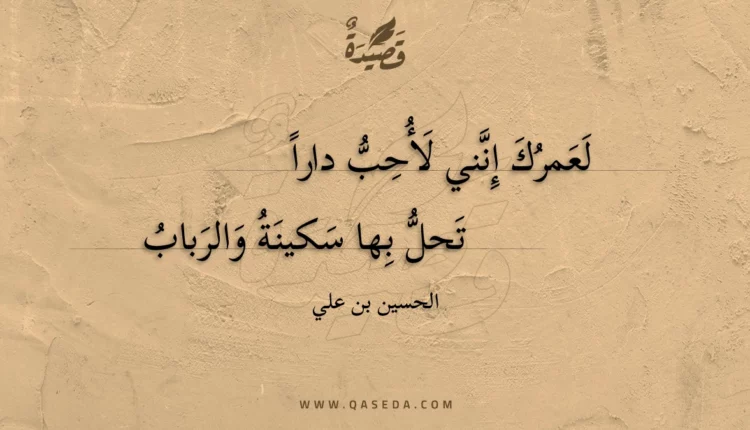 قَصِيْدَةٌ
لَعَمرُكَ إِنَّني لَأُحِبُّ داراً
تَحلُّ بِها سَكينَةُ وَالرَبابُ
الحسين بن علي
WWW.QASEDA.COM